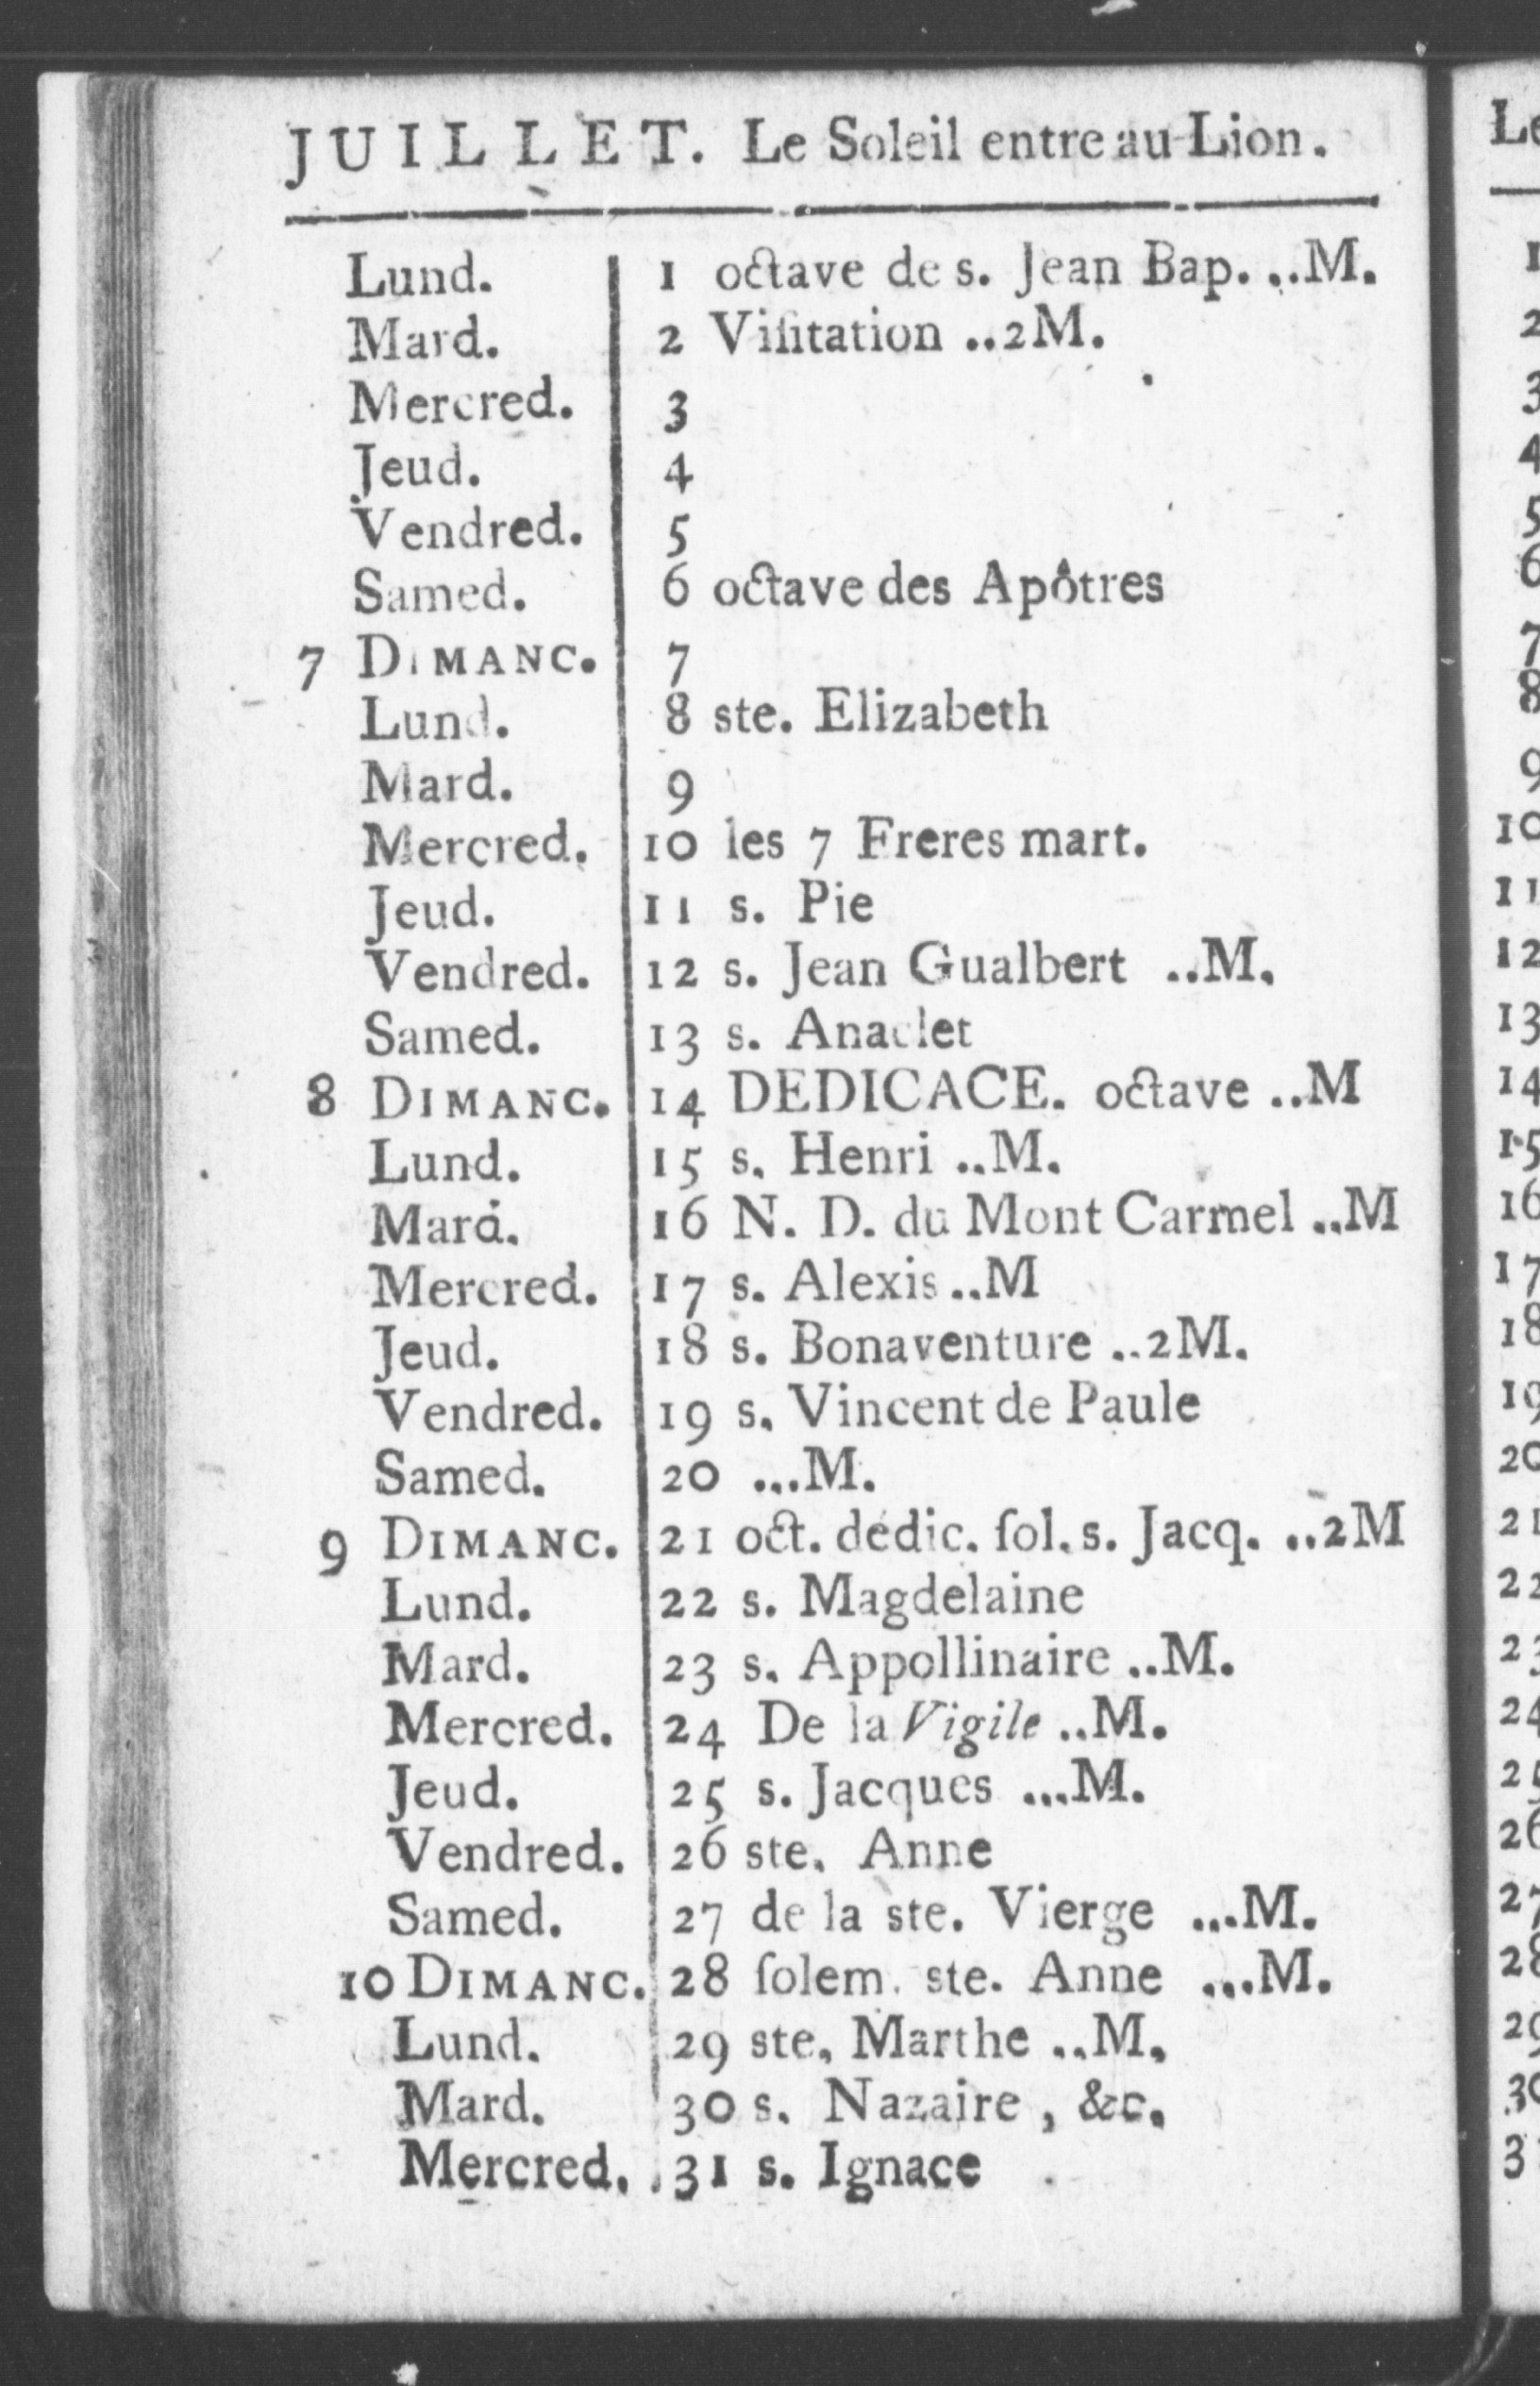 JUILLET. Le Soleil entre au Lion.
Lund. 1 octave de s. Jean Bap. ..M.
Mard. 2 Viſitation ..2M.
Mercred. 3
Jeud. 4
Vendred. 5
Samed. 6 octave des Apôtres
7 DIMANC. 7
Lund. 8 ste. Elizabeth
Mard. 9
Mercred. 10 les 7 Freres mart.
Jeud. 11 s. Pie
Vendred. 12 s. Jean Gualbert ..M.
Samed. 13 s. Anaclet
8 DIMANC. 14 DEDICACE. octave ..M
Lund. 15 s. Henri ..M.
Mard. 16 N. D. du Mont Carmel ..M
Mercred. 17 s. Alexis ..M
Jeud. 18 s. Bonaventure ..2M.
Vendred. 19 s. Vincent de Paule
Samed. 20 ...M.
9 DIMANC. 21 oct. dédic. ſol. s. Jacq. ..2M
Lund. 22 s. Magdelaine
Mard. 23 s. Appollinaire ..M.
Mercred. 24 De la Vigile ..M.
Jeud. 25 s. Jacques ...M.
Vendred. 26 ste. Anne
Samed. 27 de la ste. Vierge ...M.
10 DIMANC. 28 ſolem. ste. Anne ...M.
Lund. 29 ste. Marthe ..M.
Mard. 30 s. Nazaire, &c.
Mercred. 31 s. Ignace
Le
1
2
3
4
5
6
7
8
9
10
11
12
13
14
15
16
17
18
19
20
21
24
25
26
27
28
29
30